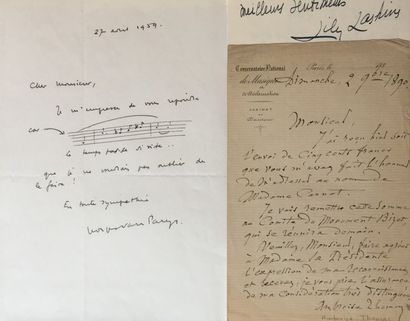 27 avril 1959.
Cher Monsieur,
Je m'empresse de vous répondre
car
le temps passe si vite..
que je ne voudrais pas oublier de
le faire!
En toute sympathie
meilleurs sentiments
Lily Laskine
Conservatoire National
de Musique
et de Déclamation
CABINET
du
Directeur
Paris, le
Dimanche, 2 9bre 1890
Monsieur,
J'ai reçu hier soir
l'envoi de Cinq cents francs
que vous m'avez fait l'honneur
de m'adresser au nom de
Madame Carnot.
Je vais remettre cette somme
au Comité du Monument Bizet,
qui se réunira demain.
Veuillez, Monsieur, faire agréer
à Madame la Présidente
l'expression de ma reconnaissance
et recevez, je vous prie l'assurance
de ma considération très distinguée
Ambroise Thomas
Ambroise Thomas